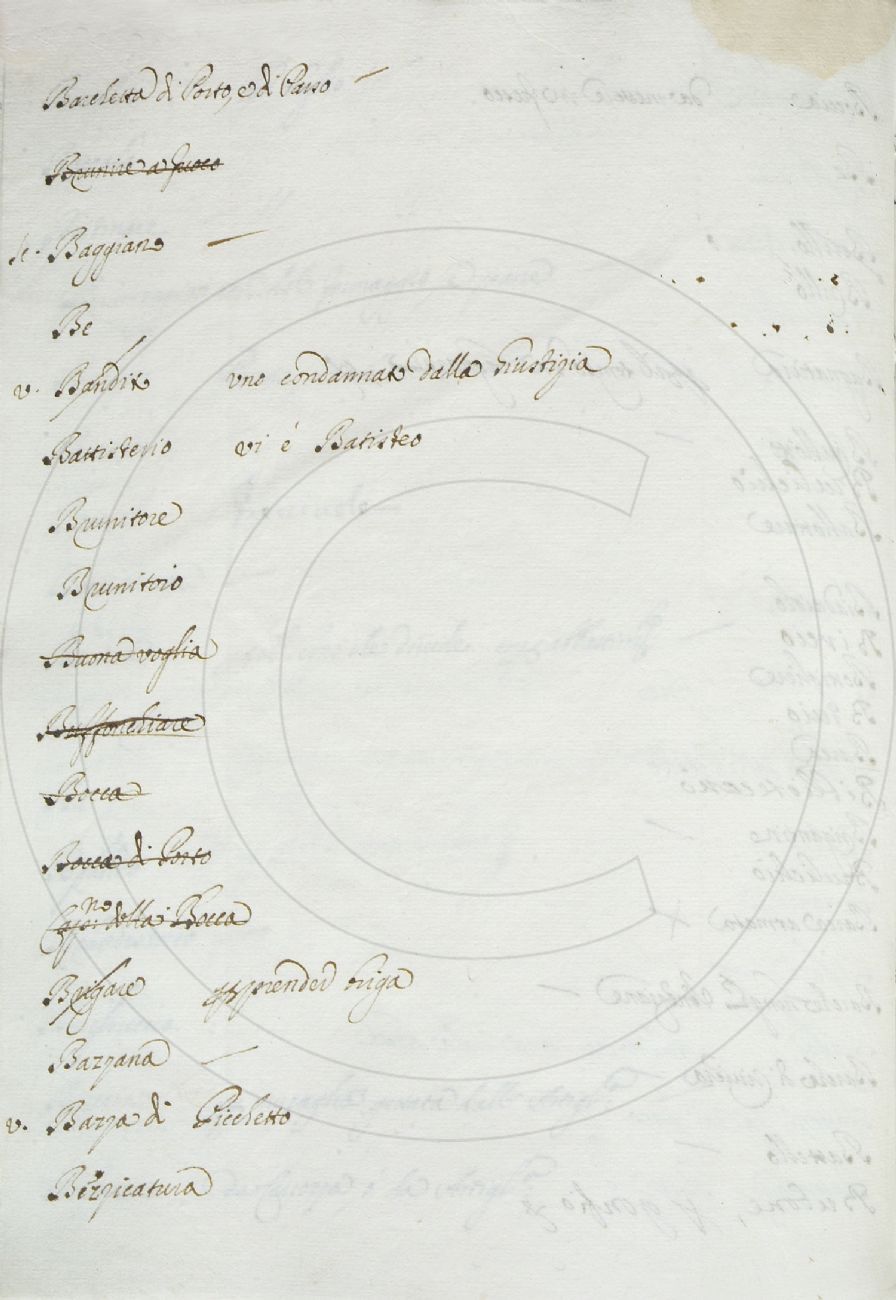 Barchetta di Corso, e di Passo —
Brunire a fuoco
Baggiano —
Be
v. Bandito uno condannato dalla Giustizia
Battisterio vi é Batisteo
Brunitore
Brunitoio
Buona voglia
Buffonchiare
Bocca
Bocca di Porto
della Bocca
Brigare prender briga
Bazzana —
v. Bazza di Picchetto
Berzicatura